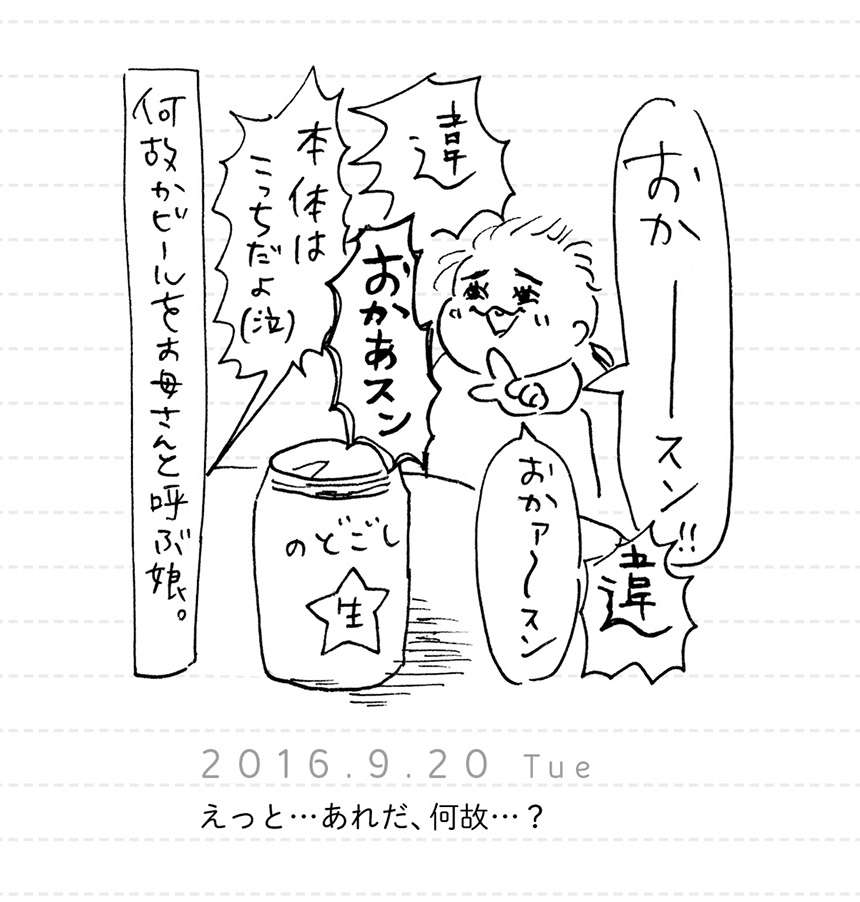 おかーースン!!
違
おかあスン
本体は
こっちだよ
(泣)
おかァ〜スン
違
のどごし
生
何故かビールをお母さんと呼ぶ娘。
2016.9.20 Tue
えっと…あれだ、何故…?